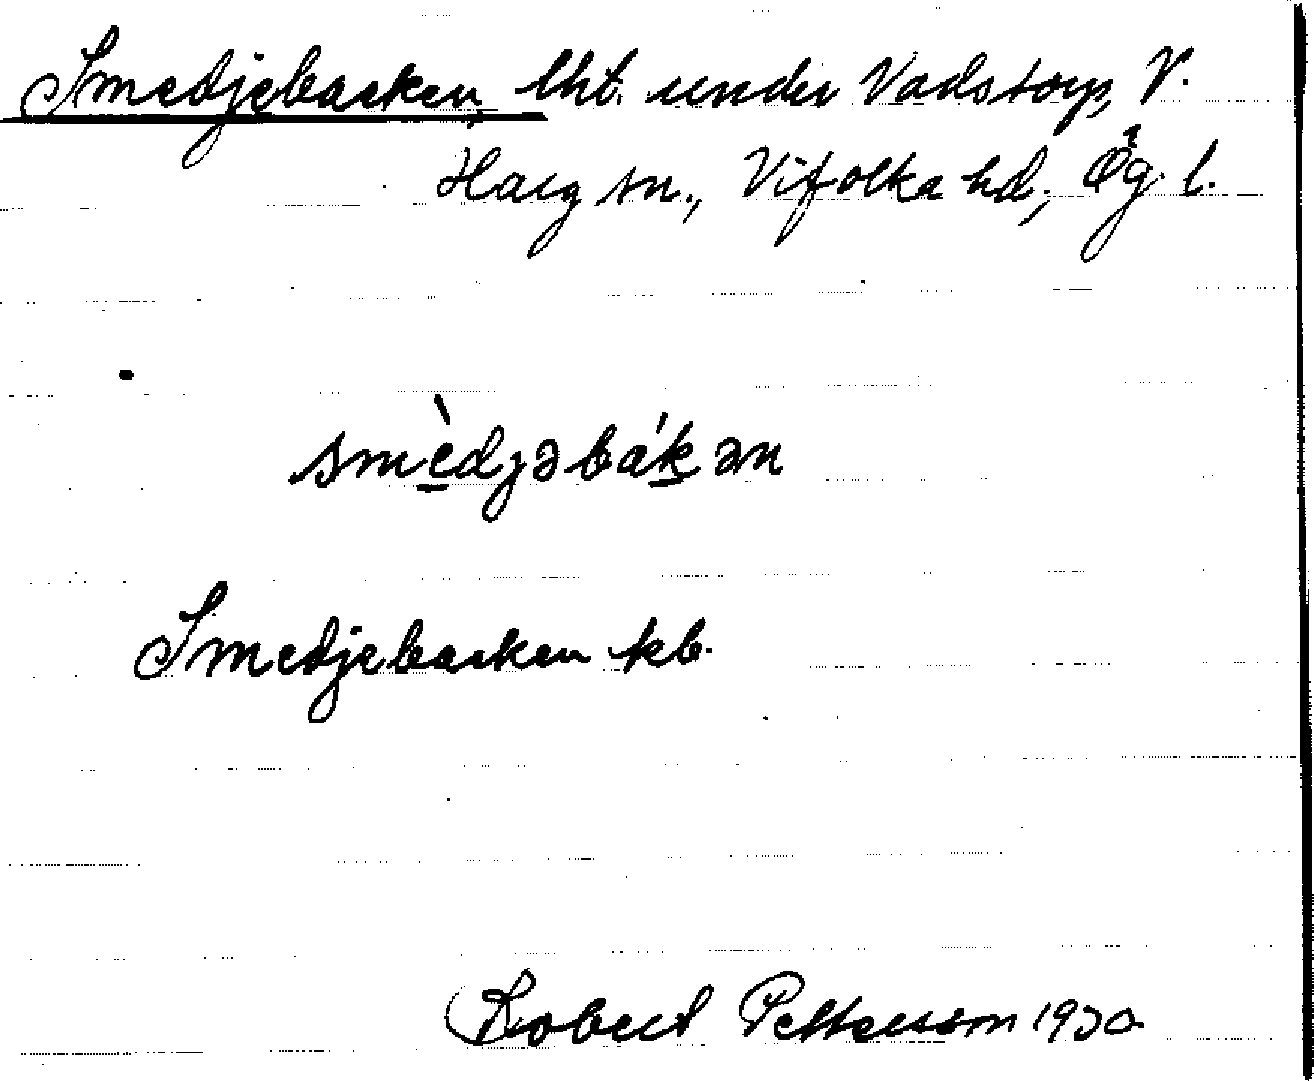 Smedjebacken, lht. under Vadstorp, V.
Harg sn., Vifolka hd, Ög. l.
smèdjəbákən
Smedjebacken kb.
Robert Pettersson 1930